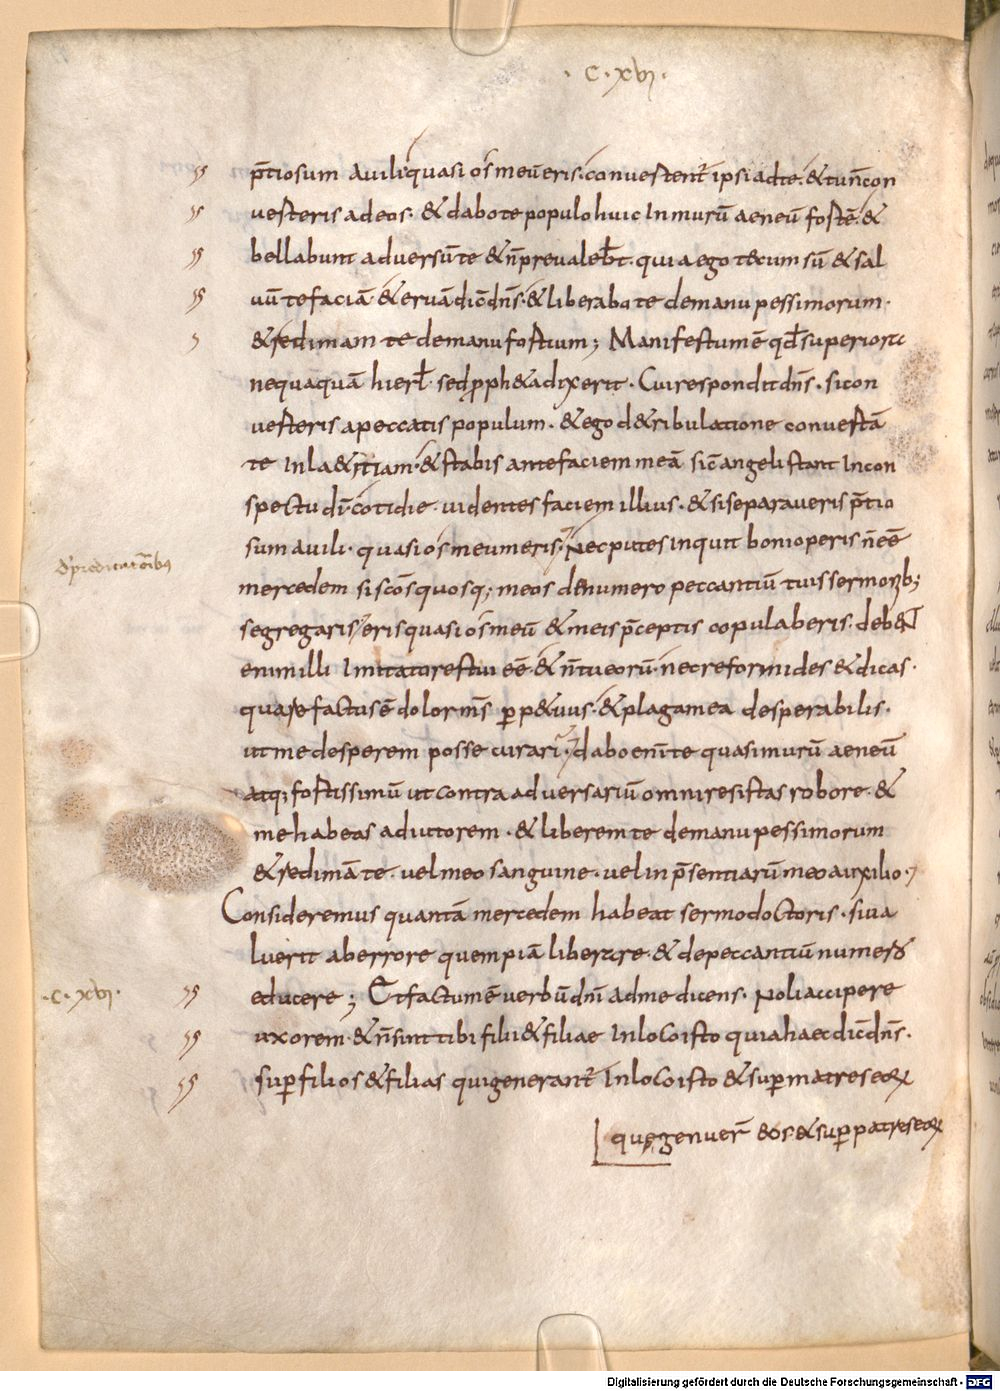 · C · XVI ·
p̄tiosum a uili quasi os meū eris. conuertent̄ ipsi ad te. & tu n̄ con
uerteris ad eos. & dabo te populo huic In murū aeneū fortē. &
bellabunt aduersū te & n̄ preualeb̄t. quia ego tecum sū & sal
uū te faciā & eruā dic̄ dn̄s. & liberabo te de manu pessimorum.
& redimam te de manu fortium; Manifestum ē qd̄ superiora
nequaquā hierł. sed ꝓph&a dixerit. Cui respondit dn̄s. si con
uerteris a peccatis populum. & ego de tribulatione conuertā
te In la&itiam. & stabis ante faciem meā sic̄ angeli stant In con
spectu dī. cotidie uidentes faciem illius. & si separaueris p̄tio
sum a uili. quasi os meum eris. Nec putes inquit boni operis n̄ eē
dˀ predicatorib;
mercedem si scōs quosq; meos de numero peccantiū tuis sermonib;
segregaris eris quasi os meū & meis p̄ceptis copulaberis. deb&
enim illi Imitatores tui eē. & n̄ tu eorū. nec reformides & dicas.
quare factus ē dolor ms̄ ꝑp&uus. & plaga mea desperabilis.
ut me desperem posse curari. dabo enī te quasi murū aeneū
atq; fortissimū ut contra aduersariū omni resistas robore. &
me habeas adiutorem. & liberem te de manu pessimorum
& redimā te. uel meo sanguine. uel in p̄sentiarū meo auxilio.
Consideremus quantā mercedem habeat sermo doctoris. si ua
luerit ab errore quempiā liberare. & de peccantiū numero
· C · XVI ·
educere; Et factum ē uerbū dn̄i ad me dicens. Noli accipere
uxorem. & n̄ sunt tibi filii & filiae In loco isto quia haec dic̄ dn̄s.
suꝑ filios & filias qui generant̄ In loco isto & suꝑ matres eoꝝ
que genuer̄ eos. & suꝑ patres eoꝝ
Digitalisierung gefördert durch die Deutsche Forschungsgemeinschaft - DFG